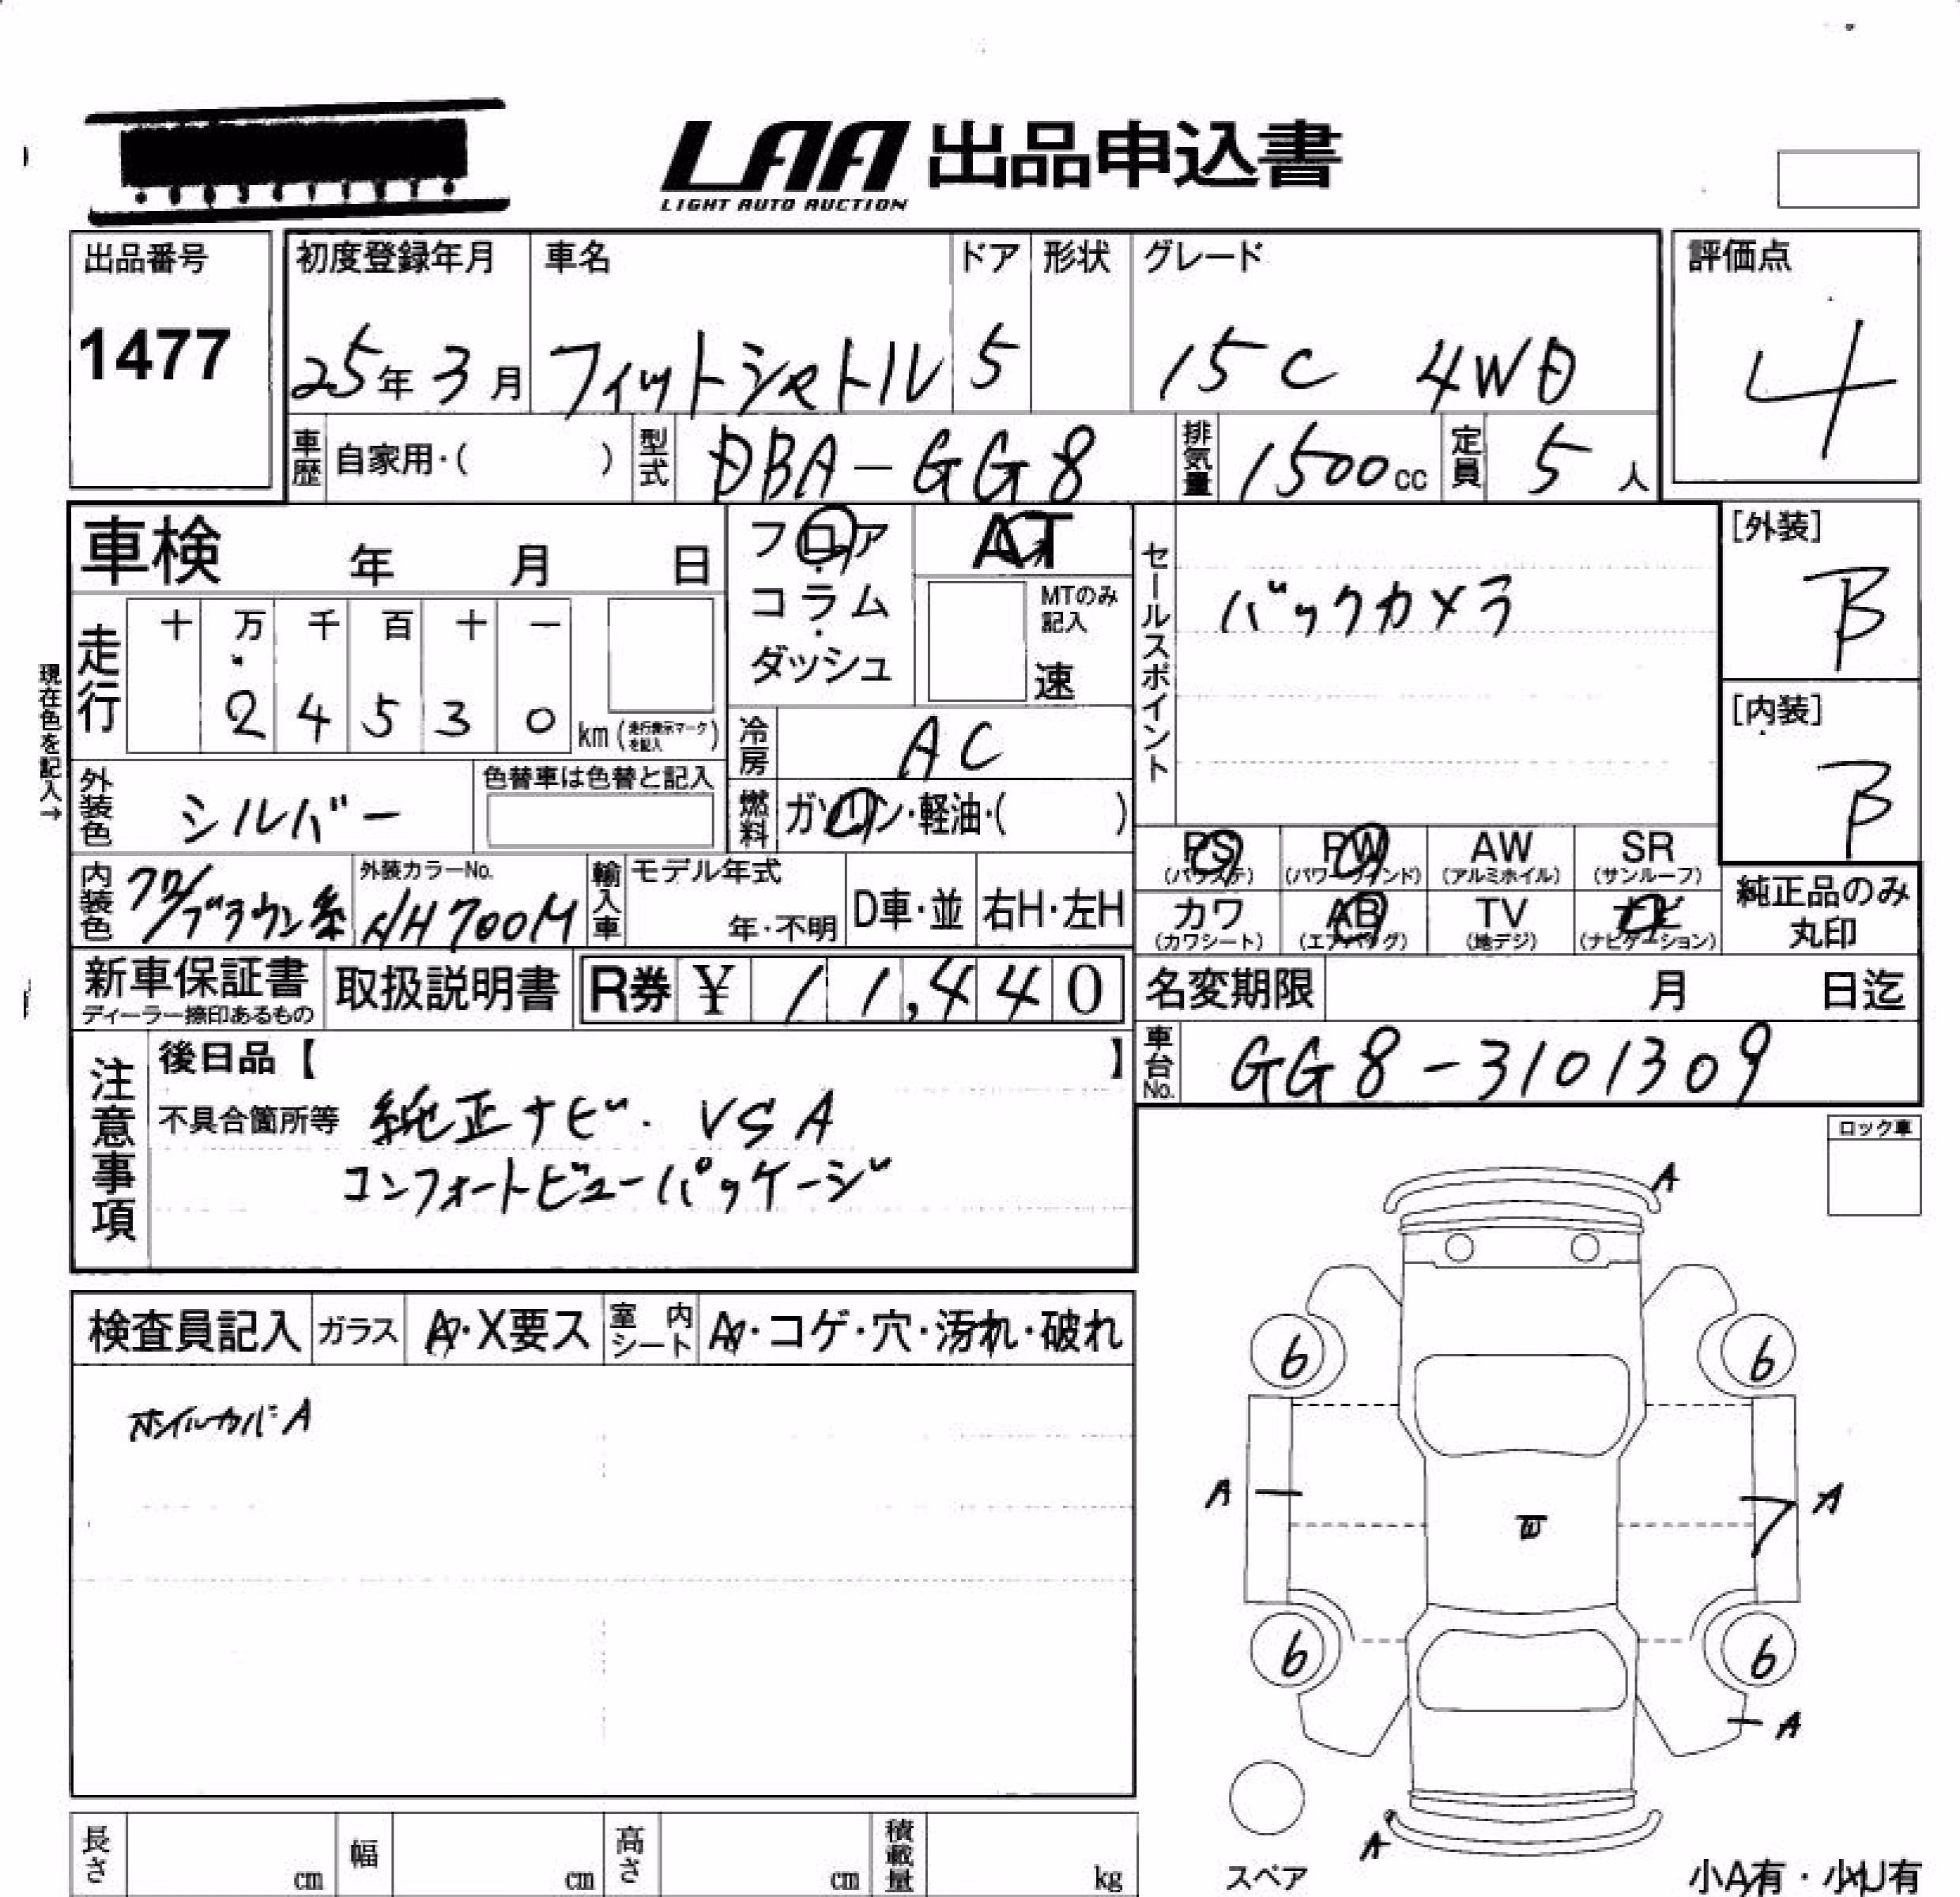 LAA 出品申込書
LIGHT AUTO AUCTION
出品番号
1477
初度登録年月 車名 ドア 形状 グレード
25年3月 フィットシャトル 5 15C 4WD
評価点
4
車歴 自家用・( ) 型式 DBA-GG8 排気量 1500cc 定員 5人
車検 年 月 日
フロア・コラム・ダッシュ
AT
MTのみ記入
速
セールスポイント
バックカメラ
[外装]
B
[内装]
B
現在色を記入→
走行 十 万 千 百 十 一
2 4 5 3 0 km (走行表示マークを記入)
冷房 AC
外装色 シルバー 色替車は色替と記入
燃料 ガソリン・軽油・( )
PS (パワステ) PW (パワーウィンド) AW (アルミホイル) SR (サンルーフ)
カワ (カワシート) AB (エアバッグ) TV (地デジ) ナビ (ナビゲーション)
純正品のみ丸印
内装色 ブラウン系 外装カラーNo. NH700M 輸入車 モデル年式 年・不明 D車・並 右H・左H
新車保証書 ディーラー捺印あるもの 取扱説明書 R券 ¥ 11,440
名変期限 月 日迄
車台No. GG8-3101309
注意事項
後日品【 】
不具合箇所等 純正ナビ. VSA
コンフォートビューパッケージ
ロック車
検査員記入 ガラス A・X要ス 室内シート A・コゲ・穴・汚れ・破れ
ホイルカバーA
A
6 6
A A
6 6
A
A
スペア
小A有・小U有
長さ cm 幅 cm 高さ cm 積載量 kg